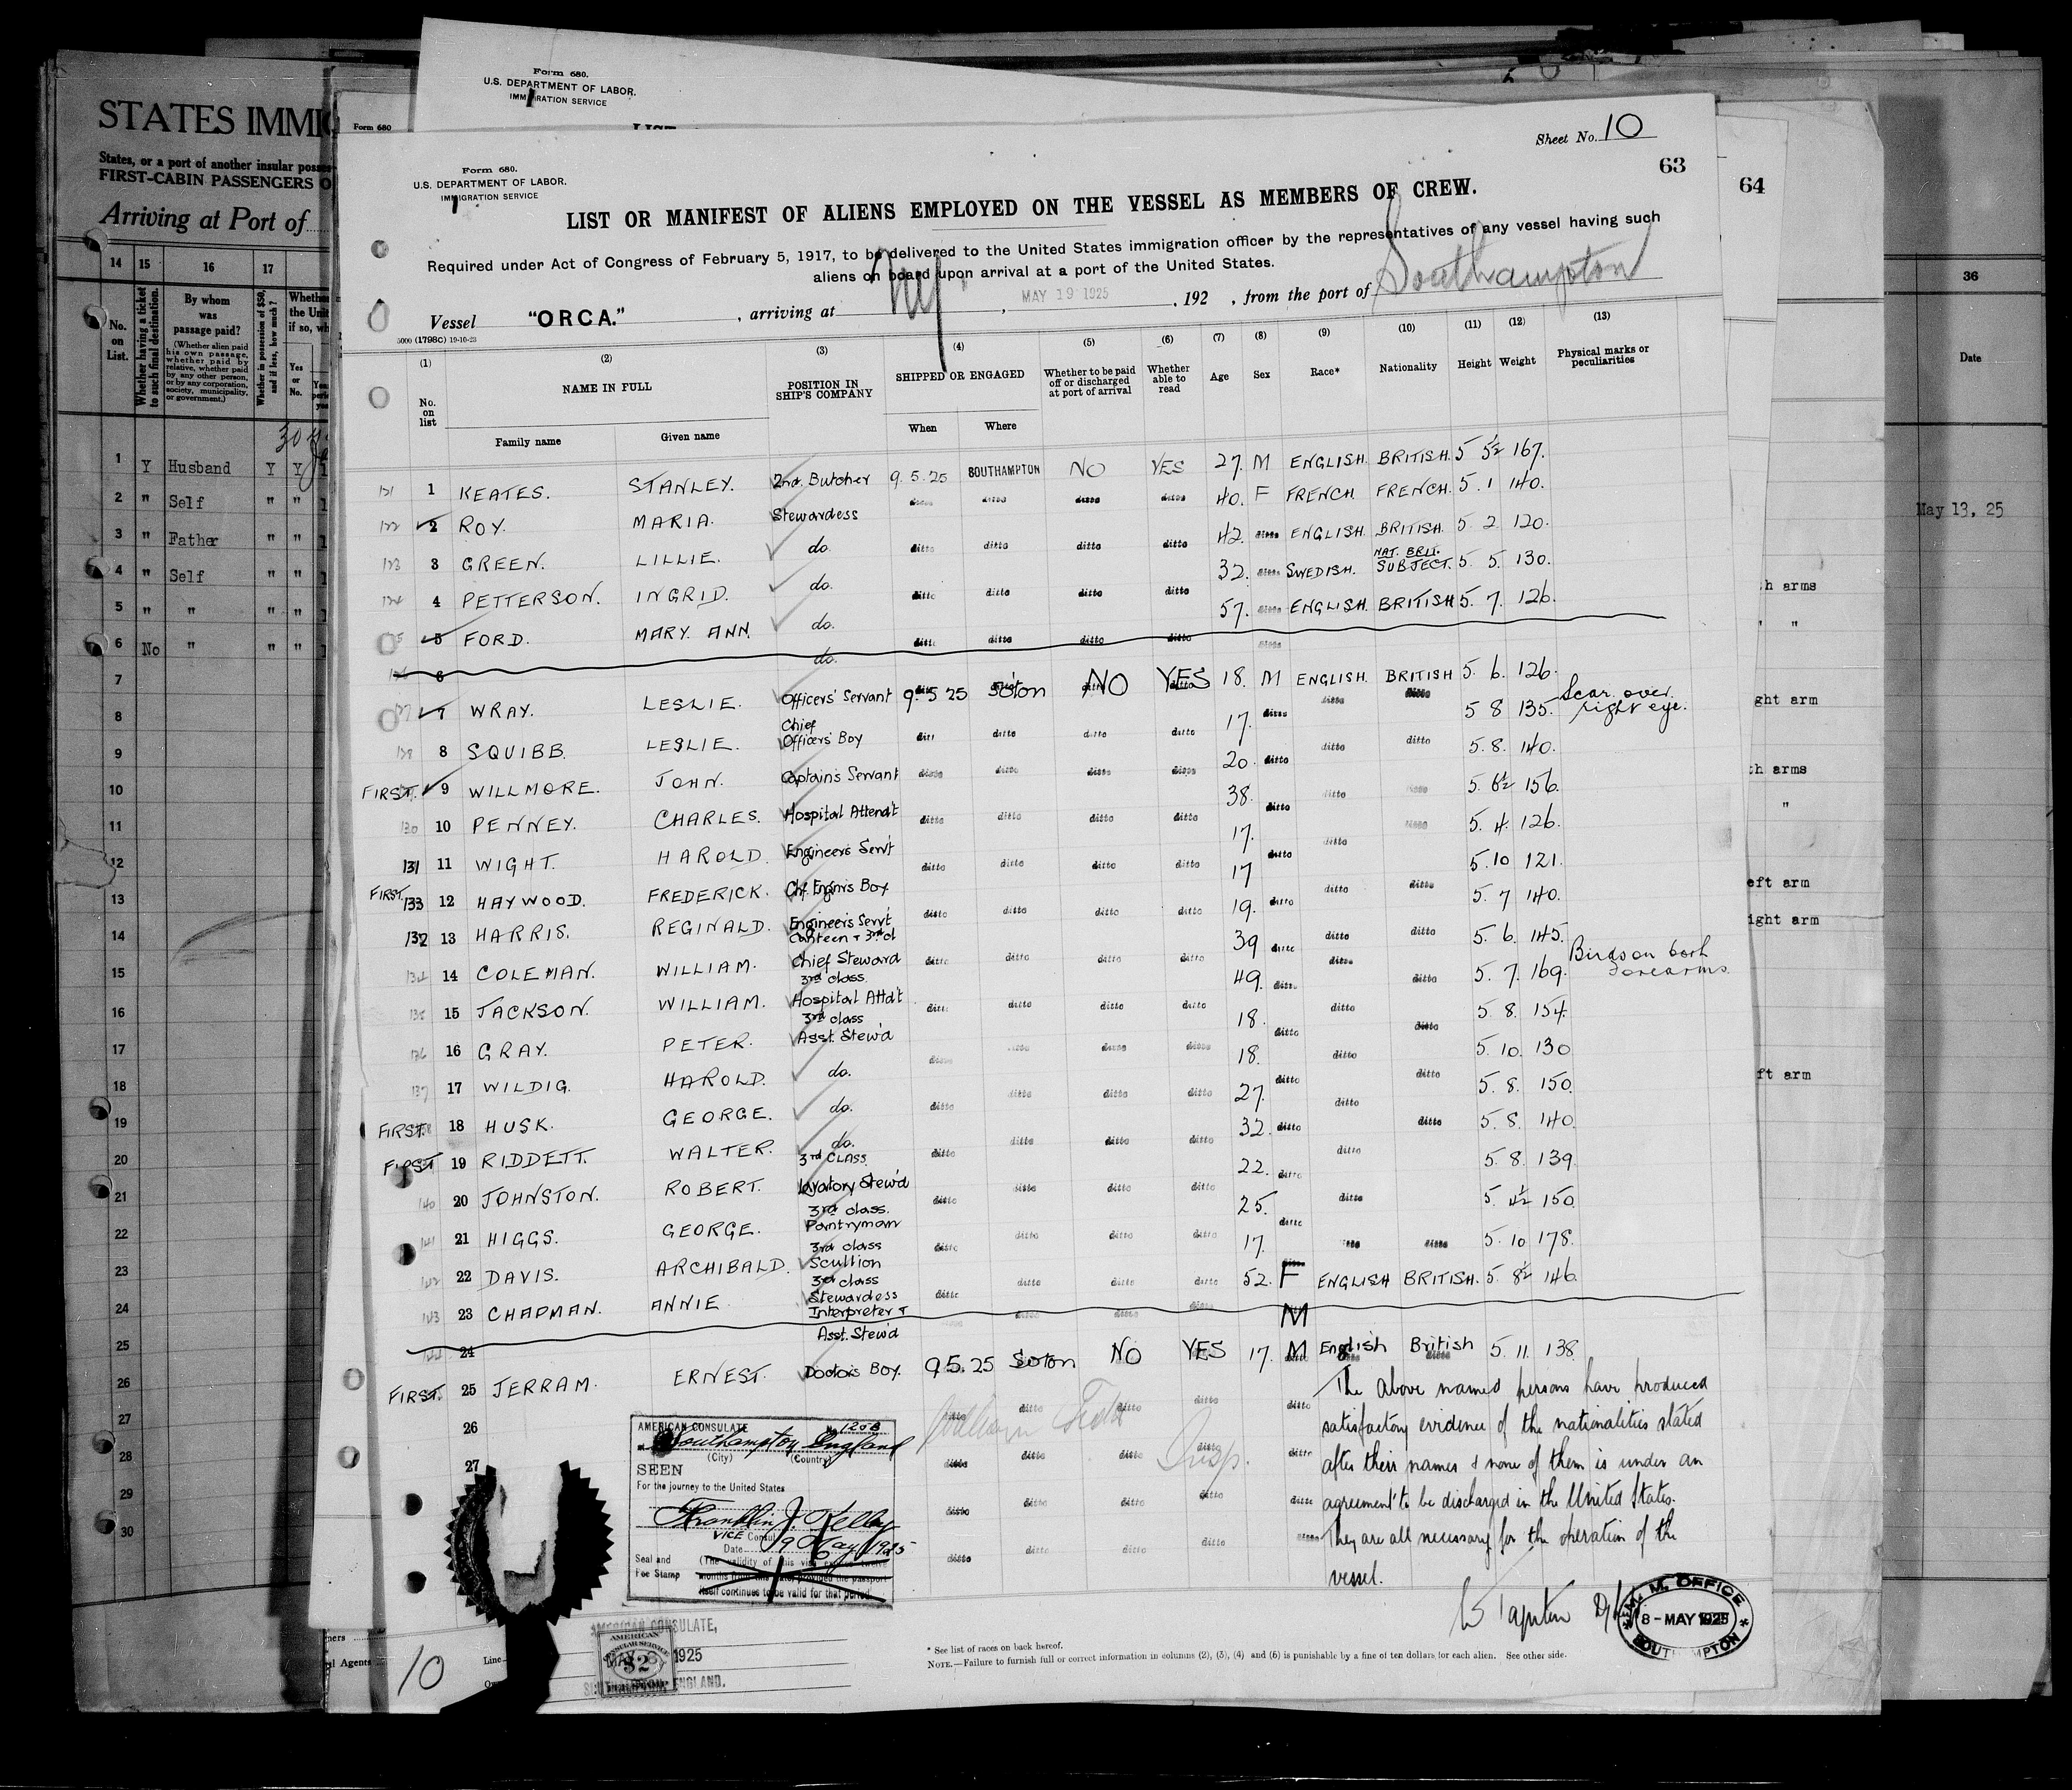 Form 680.
U.S. DEPARTMENT OF LABOR.
IMMIGRATION SERVICE
STATES IMMIG
States, or a port of another insular posses
FIRST-CABIN PASSENGERS O
Arriving at Port of
14 15 16 17
No. on List.
Whether having a ticket to such final destination.
By whom was passage paid?
(Whether alien paid his own passage, whether paid by any other person, or by any corporation, society, municipality, or government.)
Whether in possession of $50, and if less, how much?
Yes or No.
1 Y Husband Y Y
2 " Self " "
3 " Father " "
4 " Self " "
5 " " " "
6 No " " "
7
8
9
10
11
12
13
14
15
16
17
18
19
20
21
22
23
24
25
26
27
28
29
30
Form 680
Sheet No. 10
63
64
Form 680.
U.S. DEPARTMENT OF LABOR.
IMMIGRATION SERVICE
LIST OR MANIFEST OF ALIENS EMPLOYED ON THE VESSEL AS MEMBERS OF CREW.
Required under Act of Congress of February 5, 1917, to be delivered to the United States immigration officer by the representatives of any vessel having such
aliens on board upon arrival at a port of the United States.
Vessel "ORCA." , arriving at NY , MAY 19 1925 , 192 , from the port of Southampton
5000 (1798C) 19-10-23
(1) (2) (3) (4) (5) (6) (7) (8) (9) (10) (11) (12) (13)
No. on list
NAME IN FULL
Family name Given name
POSITION IN SHIP'S COMPANY
SHIPPED OR ENGAGED
When Where
Whether to be paid off or discharged at port of arrival
Whether able to read
Age Sex Race* Nationality Height Weight
Physical marks or peculiarities
121 1 KEATES. STANLEY. 2nd. Butcher 9.5.25 SOUTHAMPTON NO YES 27. M ENGLISH. BRITISH. 5 5½ 167.
122 2 ROY. MARIA. Stewardess ditto ditto ditto ditto 40. F FRENCH. FRENCH. 5.1 140.
123 3 GREEN. LILLIE. do. ditto ditto ditto ditto 42. ditto ENGLISH. BRITISH. 5 2 120.
124 4 PETTERSON. INGRID. do. ditto ditto ditto ditto 32. ditto SWEDISH. NAT. BRIT. SUBJECT. 5 5. 130.
5 FORD. MARY. ANN. do. ditto ditto ditto ditto 57. ditto ENGLISH. BRITISH 5. 7. 126.
6 do. ditto
127 7 WRAY. LESLIE. Officers' Servant 9.5 25 So'ton NO YES 18. M ENGLISH. BRITISH 5. 6. 126.
128 8 SQUIBB. LESLIE. Chief Officers' Boy ditto ditto ditto ditto 17. ditto ditto ditto 5 8 135. Scar over right eye.
FIRST. 9 WILLMORE. JOHN. Captain's Servant ditto ditto ditto ditto 20. ditto ditto ditto 5. 8. 140.
130 10 PENNEY. CHARLES. Hospital Attend't ditto ditto ditto ditto 38. ditto ditto ditto 5. 6½ 156.
131 11 WIGHT. HAROLD. Engineers Serv't ditto ditto ditto ditto 17. ditto ditto 5. 4. 126.
FIRST. 133 12 HAYWOOD. FREDERICK. Chf. Engnrs Boy. ditto ditto ditto ditto 17 ditto ditto ditto 5.10 121.
132 13 HARRIS. REGINALD. Engineers Serv't ditto ditto ditto ditto 19. ditto ditto ditto 5. 7 140.
134 14 COLEMAN. WILLIAM. Canteen + 3rd cl Chief Steward ditto ditto ditto ditto 39 ditto ditto ditto 5. 6. 145.
135 15 JACKSON. WILLIAM. 3rd class. Hospital Attd't ditto ditto ditto ditto 49. ditto ditto ditto 5. 7. 169. Birds on both forearms.
136 16 GRAY. PETER. 3rd class Asst. Stew'd ditto ditto ditto ditto 18. ditto ditto ditto 5 8. 154.
137 17 WILDIG. HAROLD. do. ditto ditto ditto ditto 18. ditto ditto ditto 5. 10. 130
FIRST. 18 HUSK. GEORGE. do. ditto ditto ditto ditto 27. ditto ditto ditto 5. 8. 150.
FIRST 19 RIDDETT. WALTER. do. ditto ditto ditto ditto 32. ditto ditto 5. 8. 140.
140 20 JOHNSTON. ROBERT. 3rd CLASS. Lavatory Stew'd ditto ditto ditto ditto 22. ditto ditto 5. 8. 139.
141 21 HIGGS. GEORGE. 3rd class. Pantryman ditto ditto ditto ditto 25. ditto ditto ditto 5. 4½ 150.
142 22 DAVIS. ARCHIBALD. 3rd class Scullion ditto ditto ditto ditto 17. 5. 10 178.
143 23 CHAPMAN. ANNIE. 3rd class Stewardess 52. F ENGLISH BRITISH. 5. 8½ 146.
144 24 Interpreter + Asst. Stew'd M
FIRST. 25 JERRAM. ERNEST. Doctors Boy. 9.5.25 So'ton NO YES 17. M English British 5. 11. 138.
26
27
William
Insp.
The above named persons have produced
satisfactory evidence of the nationalities stated
after their names & none of them is under an
agreement to be discharged in the United States.
They are all necessary for the operation of the
vessel.
AMERICAN CONSULATE
at Southampton England
(City) (Country)
SEEN
For the journey to the United States
Franklin J. Kelly
VICE Consul
Date 9 May 1925
Seal and Fee Stamp
(The validity of this visa expires twelve
months from this date, provided the passport
itself continues to be valid for that period.
M. M. OFFICE
8-MAY 1925
SOUTHAMPTON
AMERICAN CONSULATE,
MAY 8 1925
SOUTHAMPTON, ENGLAND.
AMERICAN CONSULAR SERVICE
$2
* See list of races on back hereof.
NOTE.—Failure to furnish full or correct information in columns (2), (3), (4) and (6) is punishable by a fine of ten dollars for each alien. See other side.
10
Line
36
Date
May 13, 25
th arms
" "
ght arm
th arms
"
eft arm
ight arm
ft arm